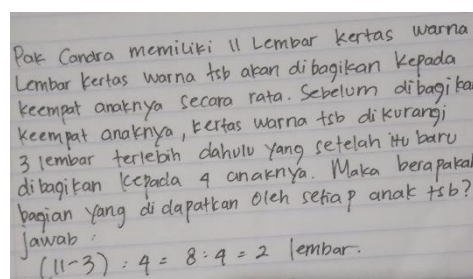 Pak Candra memiliki 11 Lembar kertas warna
Lembar kertas warna tsb akan dibagikan kepada
keempat anaknya secara rata. Sebelum dibagika
keempat anaknya, kertas warna tsb dikurangi
3 lembar terlebih dahulu yang setelah itu baru
dibagikan kepada 4 anaknya. Maka berapakah
bagian yang di dapatkan oleh setiap anak tsb?
Jawab :
(11-3) : 4 = 8 : 4 = 2 lembar.